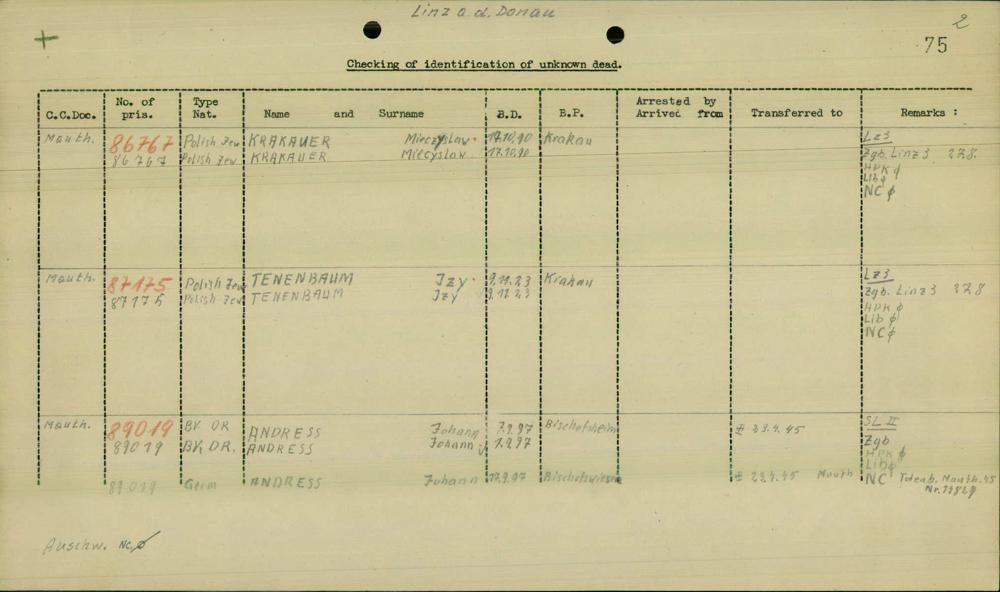 Linz a.d. Donau
2
75
Checking of identification of unknown dead.
C.C.Doc. No. of pris. Type Nat. Name and Surname B.D. B.P. Arrested by Arrived from Transferred to Remarks :
Mauth. 86767 Polish Jew KRAKAUER Mieczyslaw 17.10.90 Krakau Lz3
86767 Polish Jew KRAKAUER Miecyslaw 17.10.90 Zgb. Linz 3 278.
HPK ϕ
Lib ϕ
NC ϕ
Mauth. 87175 Polish Jew TENENBAUM Izy 9.11.23 Krakau Lz3
87175 Polish Jew TENENBAUM Izy 9.11.23 Zgb. Linz 3 278
HPK ϕ
Lib ϕ
NC ϕ
Mauth. 89019 BV. DR ANDRESS Johann 7.9.97 Bischofsheim 23.4.45 SL II
89019 BV. DR. ANDRESS Johann 1.9.97 Zgb
HPK ϕ
Lib ϕ
89019 Germ ANDRESS Johann 17.9.97 23.4.45 Mauth NC Totenb. Mauth. 45
Auschw. NC ϕ